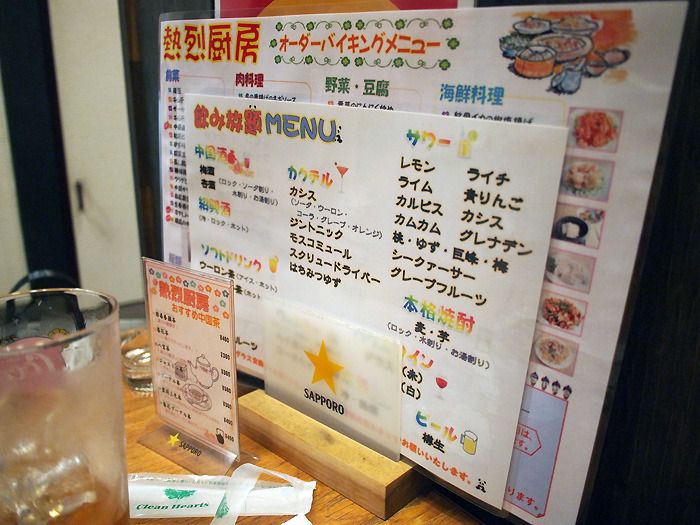 熱烈厨房
オーダーバイキングメニュー
前菜
肉料理
野菜・豆腐
海鮮料理
飲み放題MENU
中国酒
梅酒
杏酒
(ロック・ソーダ割り・
水割り・お湯割り)
紹興酒
(冷・ロック・ホット)
ソフトドリンク
ウーロン茶(アイス・ホット)
カクテル
カシス
(ソーダ・ウーロン・
コーラ・グレープ・オレンジ)
ジントニック
モスコミュール
スクリュードライバー
はちみつゆず
サワー
レモン
ライム
カルピス
カムカム
桃・ゆず・巨峰・梅
シークァーサー
グレープフルーツ
ライチ
青りんご
カシス
グレナデン
本格焼酎
麦・芋
(ロック・水割り・お湯割り)
(赤)
(白)
ビール
樽生
お願いいたします。
熱烈厨房
おすすめ中国茶
SAPPORO
SAPPORO
Clean Hearts